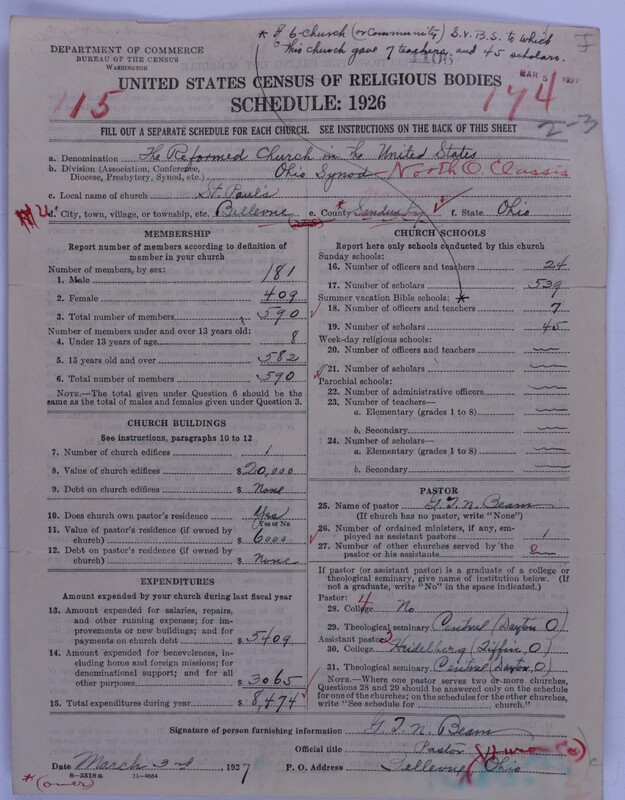 * A 6-church (or community) S.V.B.S. to which
this church gave 7 teachers, and 45 scholars.
DEPARTMENT OF COMMERCE
BUREAU OF THE CENSUS
WASHINGTON
1106
MAR 5 1927
UNITED STATES CENSUS OF RELIGIOUS BODIES
SCHEDULE: 1926
115
174
2-3
FILL OUT A SEPARATE SCHEDULE FOR EACH CHURCH. SEE INSTRUCTIONS ON THE BACK OF THIS SHEET
a. Denomination The Reformed Church in the United States
b. Division (Association, Conference, Diocese, Presbytery, Synod, etc.) Ohio Synod - North O. Classis
c. Local name of church St. Paul's
d. City, town, village, or township, etc. Bellevue e. County * Sandusky f. State Ohio
MEMBERSHIP
Report number of members according to definition of
member in your church
Number of members, by sex:
1. Male 181
2. Female 409
3. Total number of members 590
Number of members under and over 13 years old:
4. Under 13 years of age 8
5. 13 years old and over 582
6. Total number of members 590
NOTE.—The total given under Question 6 should be the
same as the total of males and females given under Question 3.
CHURCH BUILDINGS
See instructions, paragraphs 10 to 12
7. Number of church edifices 1
8. Value of church edifices $ 20,000
9. Debt on church edifices $ None
10. Does church own pastor's residence Yes
(Yes or No)
11. Value of pastor's residence (if owned by
church) $ 6000
12. Debt on pastor's residence (if owned by
church) $ None
EXPENDITURES
Amount expended by your church during last fiscal year
13. Amount expended for salaries, repairs,
and other running expenses; for im-
provements or new buildings; and for
payments on church debt $ 5409
14. Amount expended for benevolences, in-
cluding home and foreign missions; for
denominational support; and for all
other purposes $ 3065
15. Total expenditures during year $ 8,474
CHURCH SCHOOLS
Report here only schools conducted by this church
Sunday schools:
16. Number of officers and teachers 24
17. Number of scholars 539
Summer vacation Bible schools: *
18. Number of officers and teachers 7
19. Number of scholars 45
Week-day religious schools:
20. Number of officers and teachers
21. Number of scholars
Parochial schools:
22. Number of administrative officers
23. Number of teachers—
a. Elementary (grades 1 to 8)
b. Secondary
24. Number of scholars—
a. Elementary (grades 1 to 8)
b. Secondary
PASTOR
25. Name of pastor G.T.N. Beam
(If church has no pastor, write "None")
26. Number of ordained ministers, if any, em-
ployed as assistant pastors 1
27. Number of other churches served by the
pastor or his assistant
If pastor (or assistant pastor) is a graduate of a college or
theological seminary, give name of institution below. (If
not a graduate, write "No" in the space indicated.)
Pastor: 4
28. College No
29. Theological seminary Central (Dayton, O.)
Assistant pastor: 2
30. College Heidelberg (Tiffin, O.)
31. Theological seminary Central (Dayton, O.)
NOTE.—Where one pastor serves two or more churches,
Questions 28 and 29 should be answered only on the schedule
for one of the churches; on the schedules for the other churches,
write "See schedule for church."
Signature of person furnishing information G.T.N. Beam
Official title Pastor
Date March 3d, 1927 P. O. Address Bellevue, Ohio
8—5518a 11—9664
* (over)